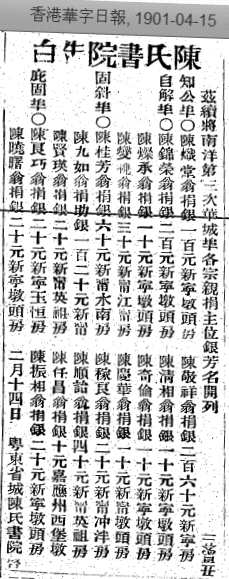 香港華字日報, 1901-04-15
陳氏書院告白
茲續將南洋第三次華城埠各宗親捐主位銀芳名開列
知公埠〇陳熾堂翁捐銀一百元新寧墩頭房 陳敬祥翁捐銀二百六十元新寧房
自解埠〇陳錦榮翁捐銀二百元新寧墩頭房 陳清相翁捐銀一十元新寧墩頭房
陳燦承翁捐銀一十元新寧墩頭房 陳奇倫翁捐銀一十元新寧墩頭房
陳變翁捐銀三十元新甯江甯房 陳慶華翁捐銀一十元新甯墩頭房
固斜埠〇陳桂芳翁捐銀六十元新甯水南房 陳稼良翁捐銀二十元新甯冲泮房
陳九如翁捐助銀一百二十元新甯 陳順詒翁捐銀四十元新甯英祖房
陳賢英翁捐銀二十元新甯英祖房 陳任昌翁捐銀十元嘉應州西堡墩
庇固埠〇陳良巧翁捐銀二十元新寧玉恒房 陳振相翁捐銀二十元新寧墩頭房
陳曉曙翁捐銀二十元新寧墩頭房 二月十四日 粵東省城陳氏書院